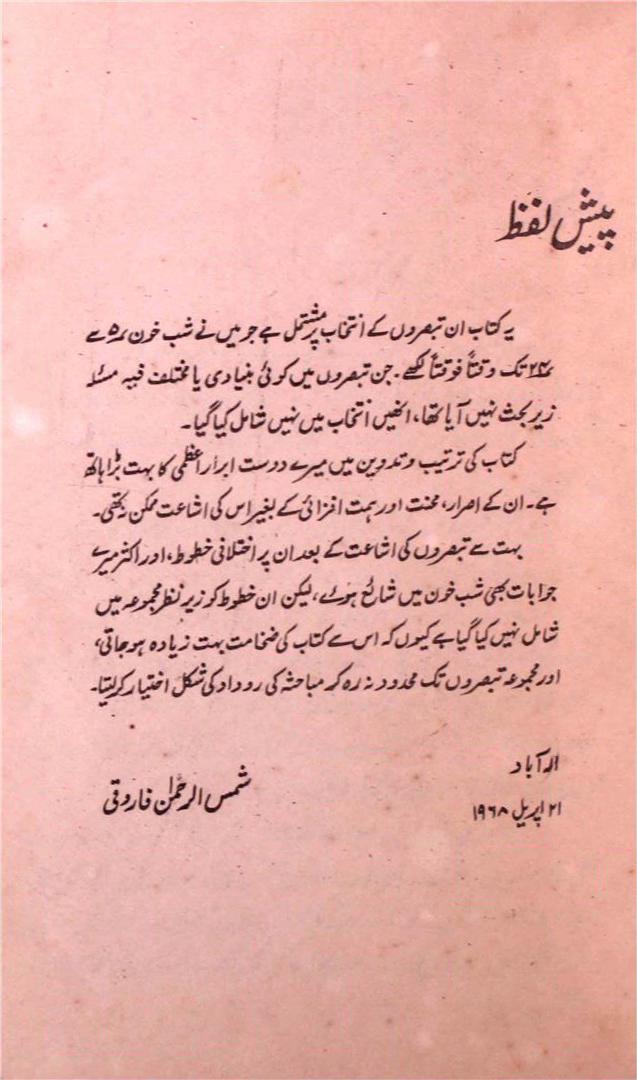 پیش لفظ
یہ کتاب ان تبصروں کے انتخاب پر مشتمل ہے جو میں نے شب خون ۵؍ سے
۲۴؍ تک وقتاً فوقتاً لکھے۔ جن تبصروں میں کوئی بنیادی یا مختلف فیہ مسئلہ
زیر بحث نہیں آیا تھا، انھیں انتخاب میں نہیں شامل کیا گیا۔
کتاب کی ترتیب و تدوین میں میرے دوست ابرار اعظمی کا بہت بڑا ہاتھ
ہے۔ ان کے اصرار، محنت اور ہمت افزائی کے بغیر اس کی اشاعت ممکن نہ تھی۔
بہت سے تبصروں کی اشاعت کے بعد ان پر اختلافی خطوط، اور اکثر میرے
جوابات بھی شب خون میں شائع ہوئے، لیکن ان خطوط کو زیر نظر مجموعہ میں
شامل نہیں کیا گیا ہے کیوں کہ اس سے کتاب کی ضخامت بہت زیادہ ہو جاتی،
اور مجموعہ تبصروں تک محدود نہ رہ کر مباحثہ کی روداد کی شکل اختیار کر لیتا۔
الہ آباد
۲۱ اپریل ۱۹۶۸
شمس الرحمٰن فاروقی